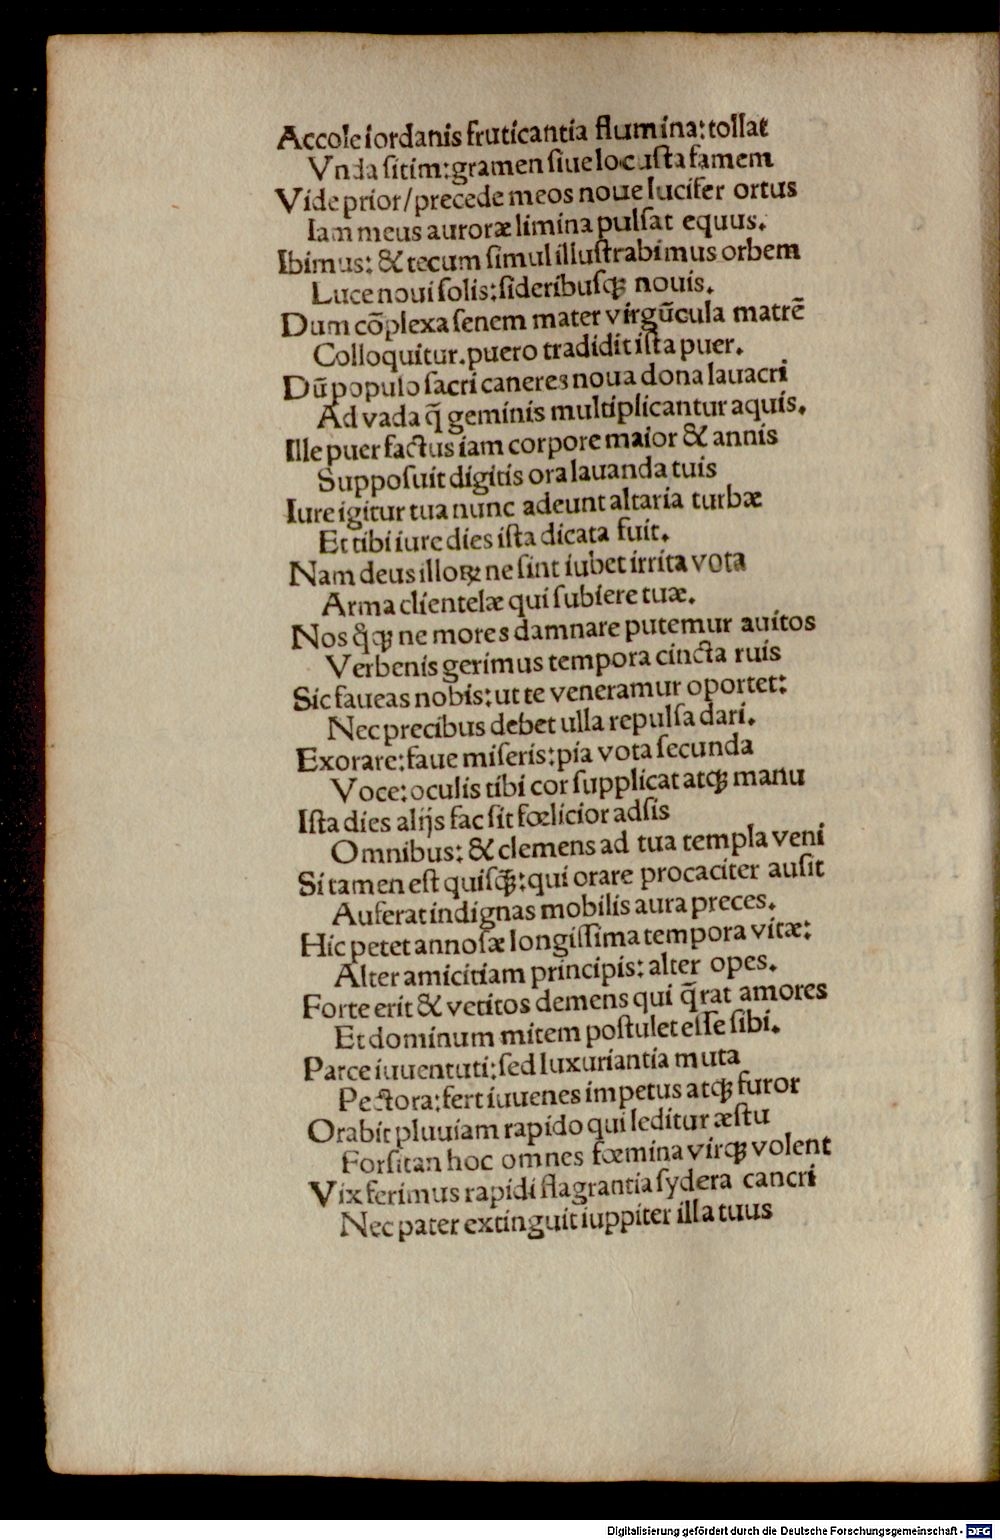 Accole iordanis fruticantia flumina: tollat
Vnda sitim: gramen siue locusta famem
Vide prior/ precede meos noue lucifer ortus
Iam meus auroræ limina pulſat equus.
Ibimus: & tecum simul illuſtrabimus orbem
Luce noui ſolis: ſideribuſqꝫ nouis.
Dum cõplexa ſenem mater virgũcula matrẽ
Colloquitur. puero tradidit iſta puer.
Dũ populo ſacri caneres noua dona lauacri
Ad vada q̃ geminis multiplicantur aquis.
Ille puer factus iam corpore maior & annis
Suppoſuit digitis ora lauanda tuis
Iure igitur tua nunc adeunt altaria turbæ
Et tibi iure dies iſta dicata fuit.
Nam deus illoꝝ ne ſint iubet irrita vota
Arma clientelæ qui ſubiere tuæ.
Nos q̊qꝫ ne mores damnare putemur auitos
Verbenis gerimus tempora cincta ruis
Sic faueas nobis: ut te veneramur oportet:
Nec precibus debet ulla repulſa dari.
Exorare: faue miſeris: pia vota ſecunda
Voce: oculis tibi cor ſupplicat atqꝫ manu
Iſta dies alijs fac ſit fœlicior adſis
Omnibus: & clemens ad tua templa veni
Si tamen eſt quiſqꝫ̃: qui orare procaciter auſit
Auferat indignas mobilis aura preces.
Hic petet annoſæ longiſſima tempora vitæ:
Alter amicitiam principis: alter opes.
Forte erit & vetitos demens qui q̃rat amores
Et dominum mitem poſtulet eſſe ſibi.
Parce iuuentuti: ſed luxuriantia muta
Pectora: fert iuuenes impetus atqꝫ furor
Orabit pluuiam rapido qui leditur æſtu
Forſitan hoc omnes fœmina virqꝫ volent
Vix ferimus rapidi flagrantia ſydera cancri
Nec pater extinguit iuppiter illa tuus
Digitalisierung gefördert durch die Deutsche Forschungsgemeinschaft - DFG